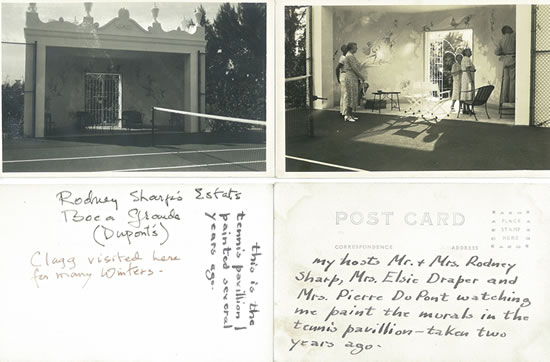 Rodney Sharp's Estate
Boca Grande
(Dupont's)
Clagg visited here
for many Winters -
this is the
tennis pavillion I
painted several
years ago.
POST CARD
PLACE
STAMP
HERE
CORRESPONDENCE
ADDRESS
my hosts Mr. + Mrs. Rodney
Sharp, Mrs. Elsie Draper and
Mrs. Pierre DuPont watching
me paint the murals in the
tennis pavillion - taken two
years ago -